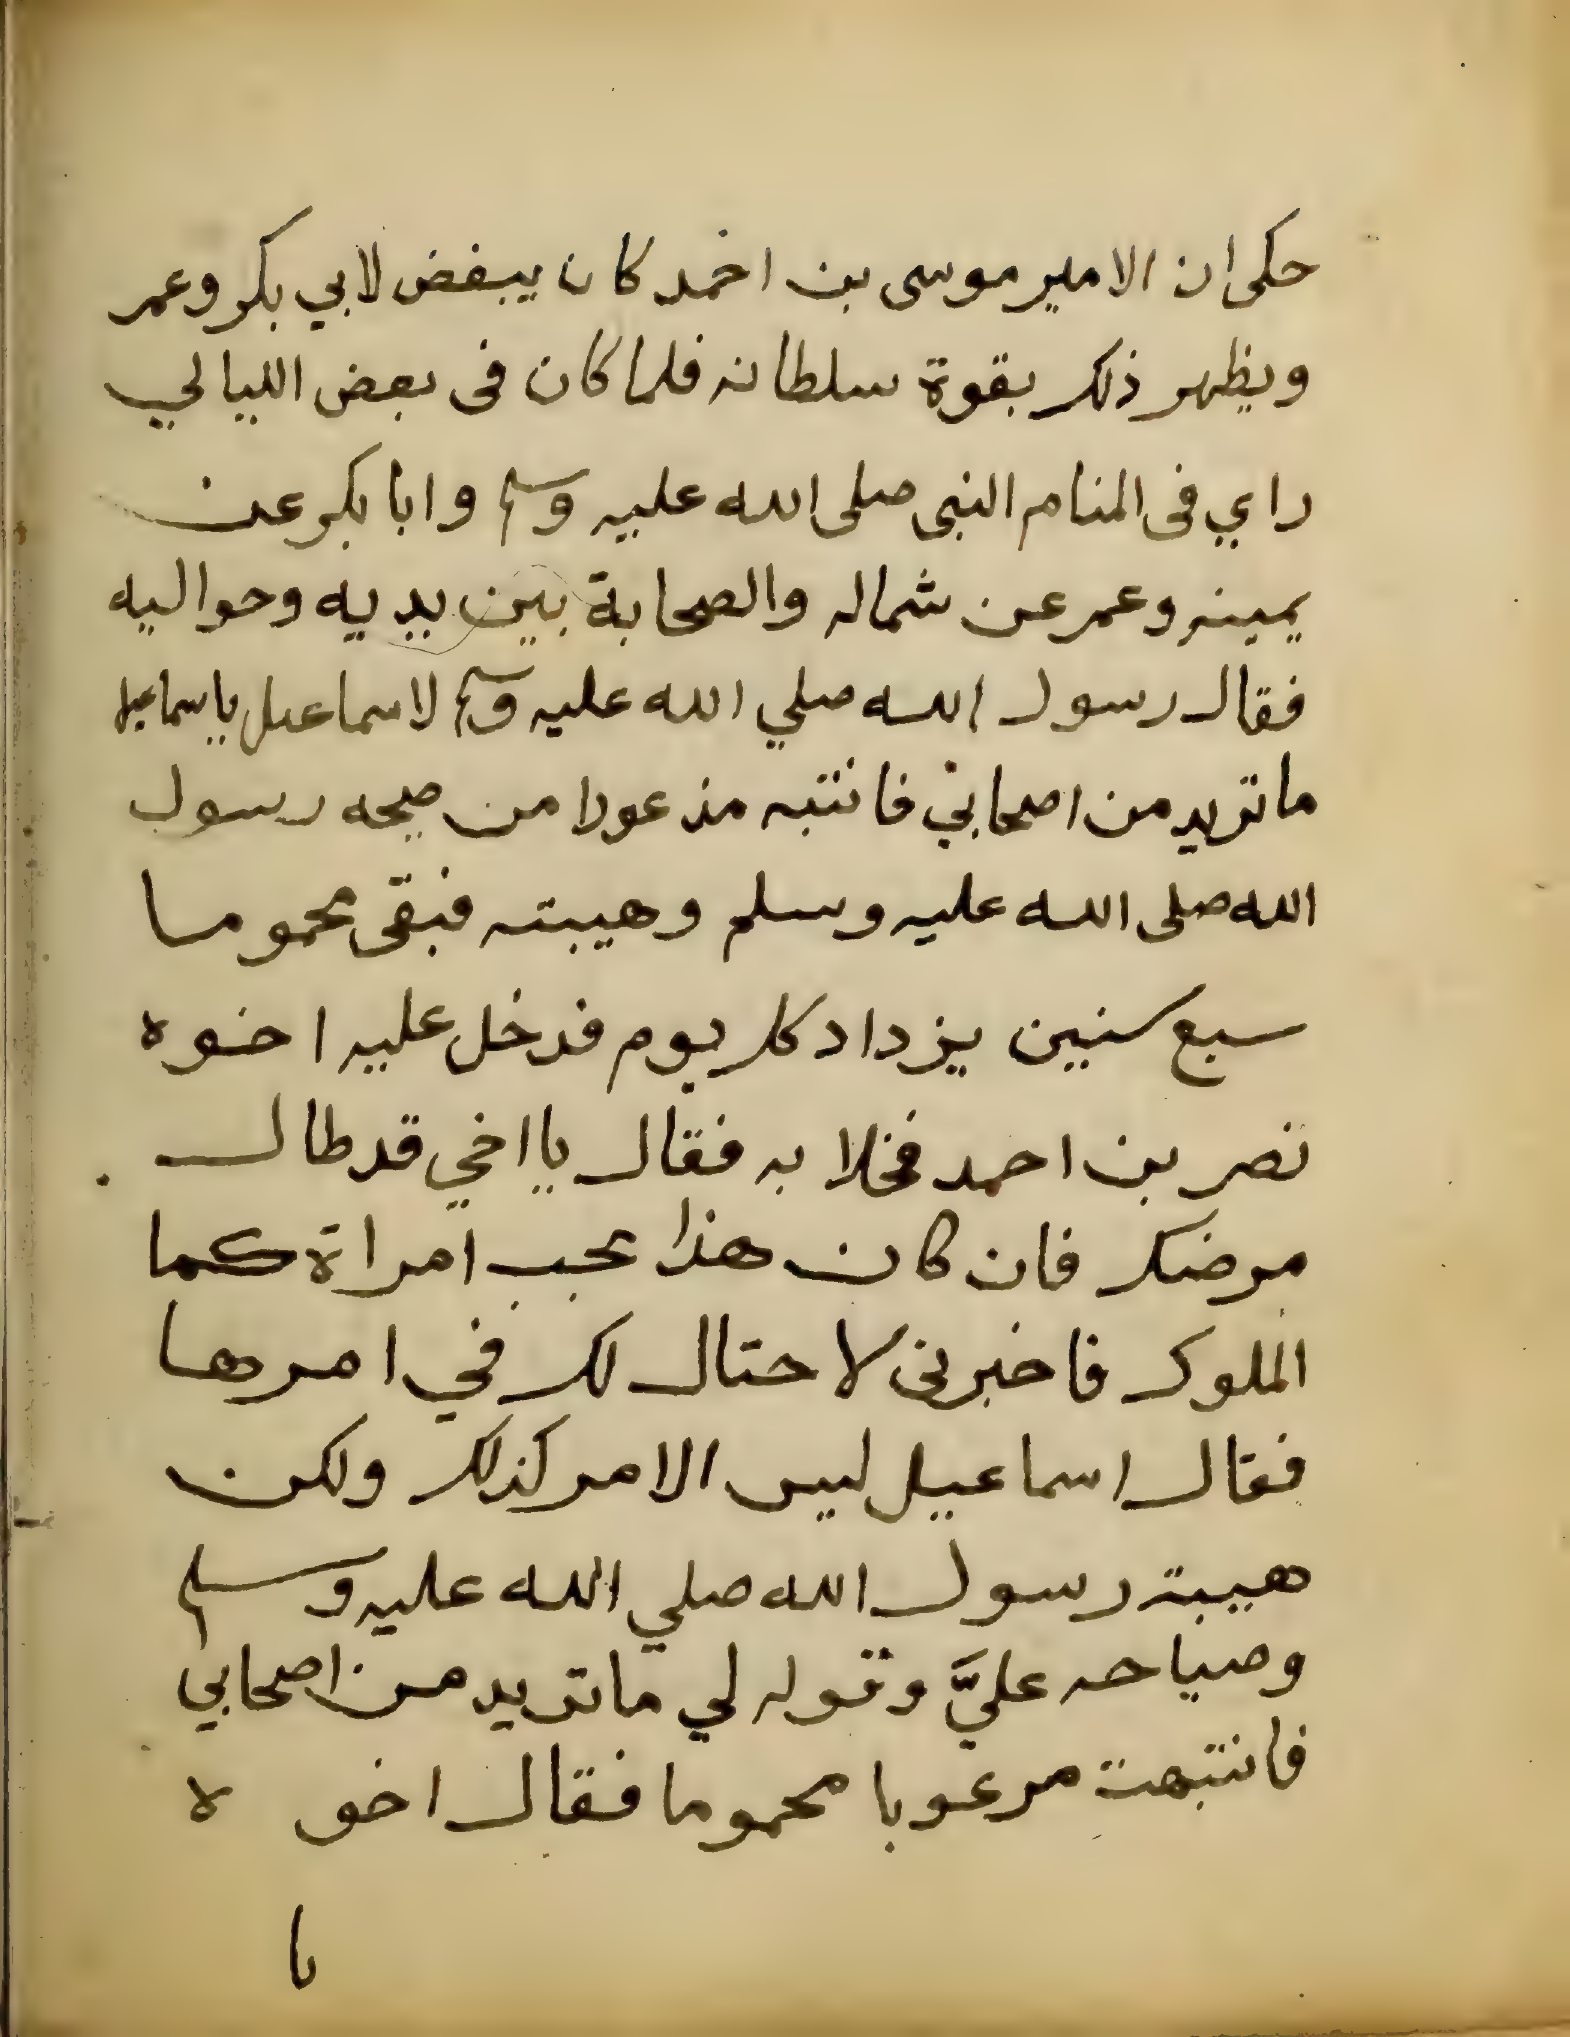 حكى ان الامير موسى بن احمد كان يبغض لابي بكر وعمر
ويظهر ذلك بقوة سلطانه فلما كان فى بعض الليالي
راي فى المنام النبى صلى الله عليه وسلم وابا بكر عن
يمينه وعمر عن شماله والصحابة بين يديه وحواليه
فقال رسول الله صلي الله عليه وسلم لاسماعيل ياسماعيل
ما تريد من اصحابي فانتبه مذعورا من صيحه رسول
الله صلى الله عليه وسلم وهيبته فبقى محموما
سبع سنين يزداد كل يوم فدخل عليه اخوه
نصر بن احمد فخلا به فقال يا اخي قد طال
مرضك فان كان هذا بحب امراة كما
الملوك فاخبرنى لاحتال لك في امرها
فقال اسماعيل ليس الامر كذلك ولكن
هيبته رسول الله صلي الله عليه وسلم
وصياحه عليَّ وقوله لي ما تريد من اصحابي
فانتبهت مرعوبا محموما فقال اخوه
يا